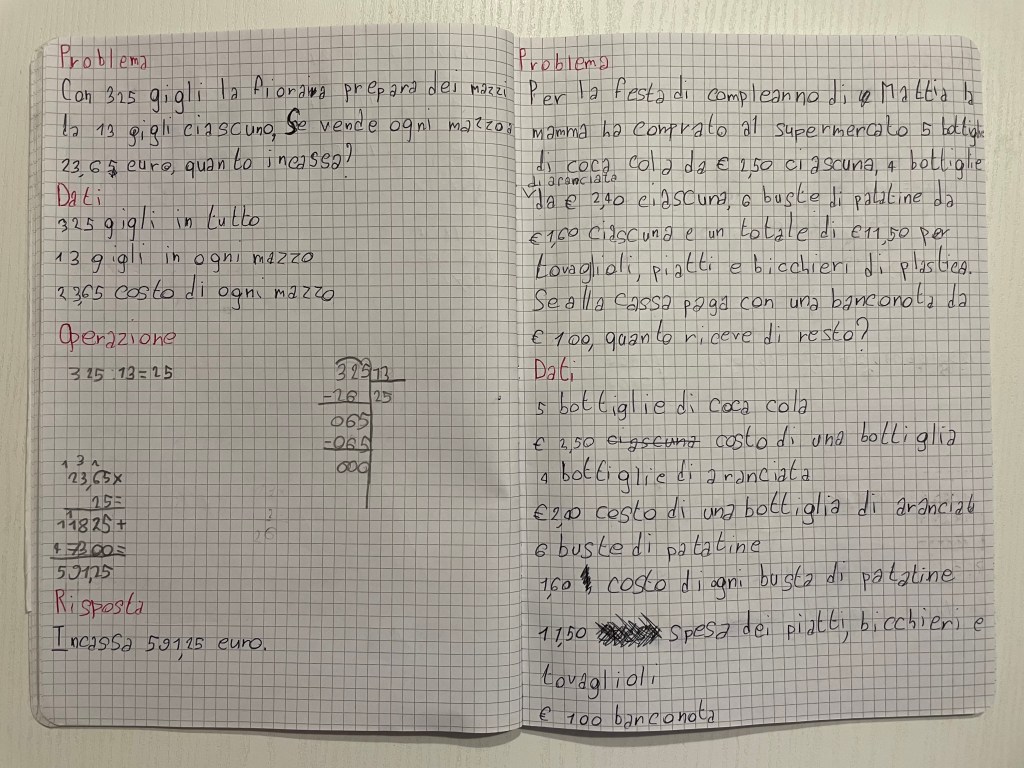 Problema
Con 325 gigli la fioraia prepara dei mazzi
da 13 gigli ciascuno, Se vende ogni mazzo a
23,65 euro, quanto incassa?
Dati
325 gigli in tutto
13 gigli in ogni mazzo
23,65 costo di ogni mazzo
Operazione
325 : 13 = 25
325 13
-26 25
065
-065
000
1 3 2
23,65x
25=
11825+
47300=
591,25
Risposta
Incassa 591,25 euro.
Problema
Per la festa di compleanno di Mattia la
mamma ha comprato al supermercato 5 bottiglie
di coca cola da € 2,50 ciascuna, 4 bottiglie
di aranciata
da € 2,40 ciascuna, 6 buste di patatine da
€ 1,60 ciascuna e un totale di € 11,50 per
tovaglioli, piatti e bicchieri di plastica.
Se alla cassa paga con una banconota da
€ 100, quanto riceve di resto?
Dati
5 bottiglie di coca cola
€ 2,50 ciascuna costo di una bottiglia
4 bottiglie di aranciata
costo di una bottiglia di aranciat
6 buste di patatine
1,60 costo di ogni busta di patatine
11,50 spesa dei piatti, bicchieri e
tovaglioli
€ 100 banconota